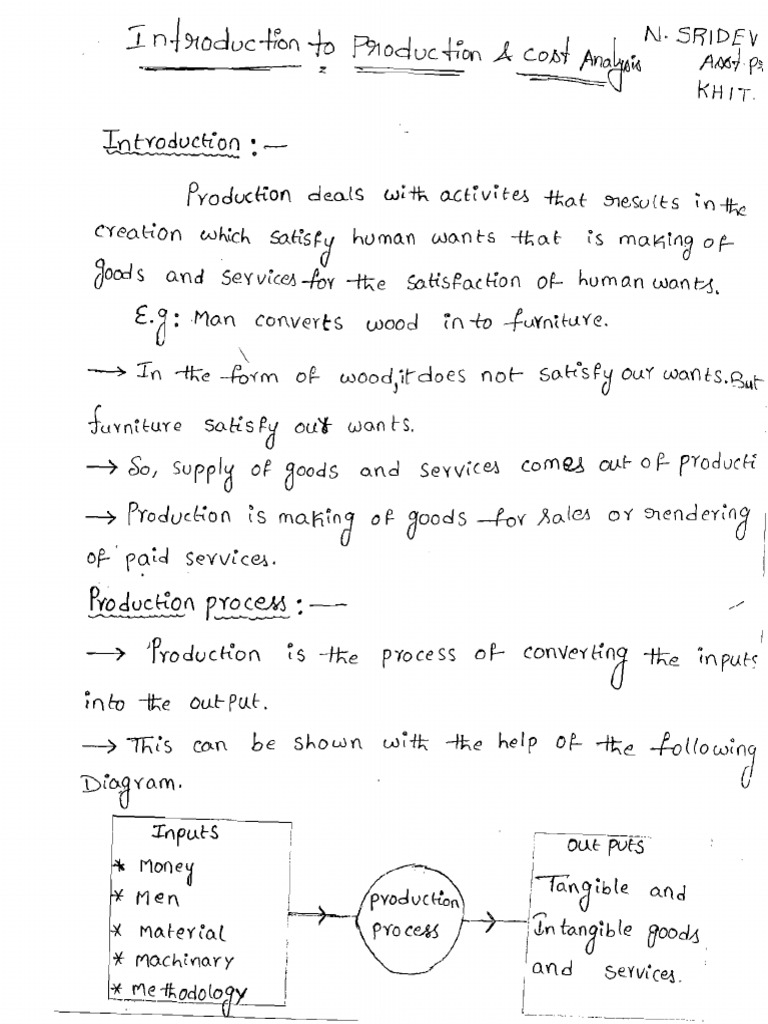 Introduction to Production & cost Analysis
N. SRIDEV
KHIT.
Introduction :-
Production deals with activites that results in the
creation which satisfy human wants that is making of
goods and services for the satisfaction of human wants.
E.g: Man converts wood in to furniture.
→ In the form of wood, it does not satisfy our wants. But
furniture satisfy our wants.
→ So, supply of goods and services comes out of producti
→ Production is making of goods for sales or rendering
of paid services.
Production process :-
→ Production is the process of converting the inputs
into the output.
→ This can be shown with the help of the following
Diagram.
Inputs
* Money
* Men
* Material
* Machinary
* Methodology
production
process
out puts
Tangible and
Intangible goods
and services.